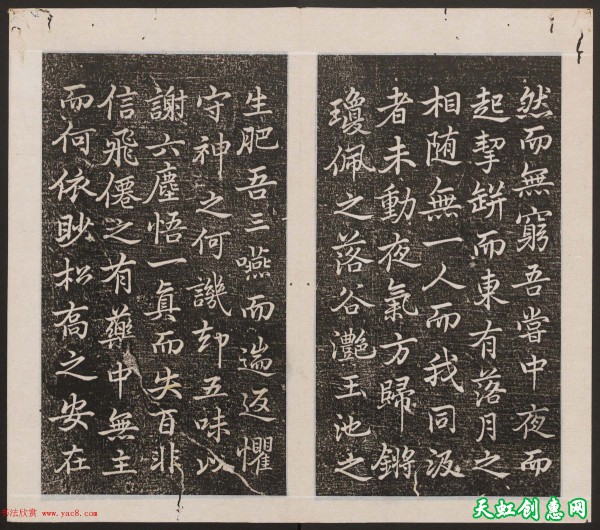 然而無窮吾嘗中夜而
起挈缾而東有落月之
相随無一人而我同汲
者未動夜氣方歸鏘
瓊佩之落谷灔玉池之
生肥吾三嚥而遄返懼
守神之何譏却五味以
謝六塵悟一真而失百非
信飛僊之有藥中無主
而何依眇松喬之安在
书法欣赏 www.yac8.com
天虹创惠网